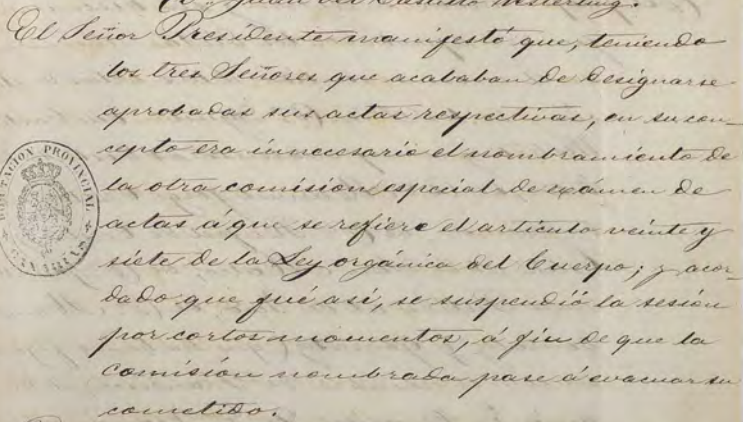 Juan del Castillo Westerling.
El Señor Presidente manifestó que, teniendo
los tres Señores que acababan de designarse
aprobadas sus actas respectivas, en su con-
cepto era innecesario el nombramiento de
la otra comisión especial de exámen de
actas á que se refiere el artículo veinte y
siete de la Ley orgánica del Cuerpo; y acor-
dado que fué así, se suspendió la sesión
por cortos momentos, á fin de que la
comisión nombrada pase á evacuar su
cometido.
DIPUTACION PROVINCIAL
CANARIAS